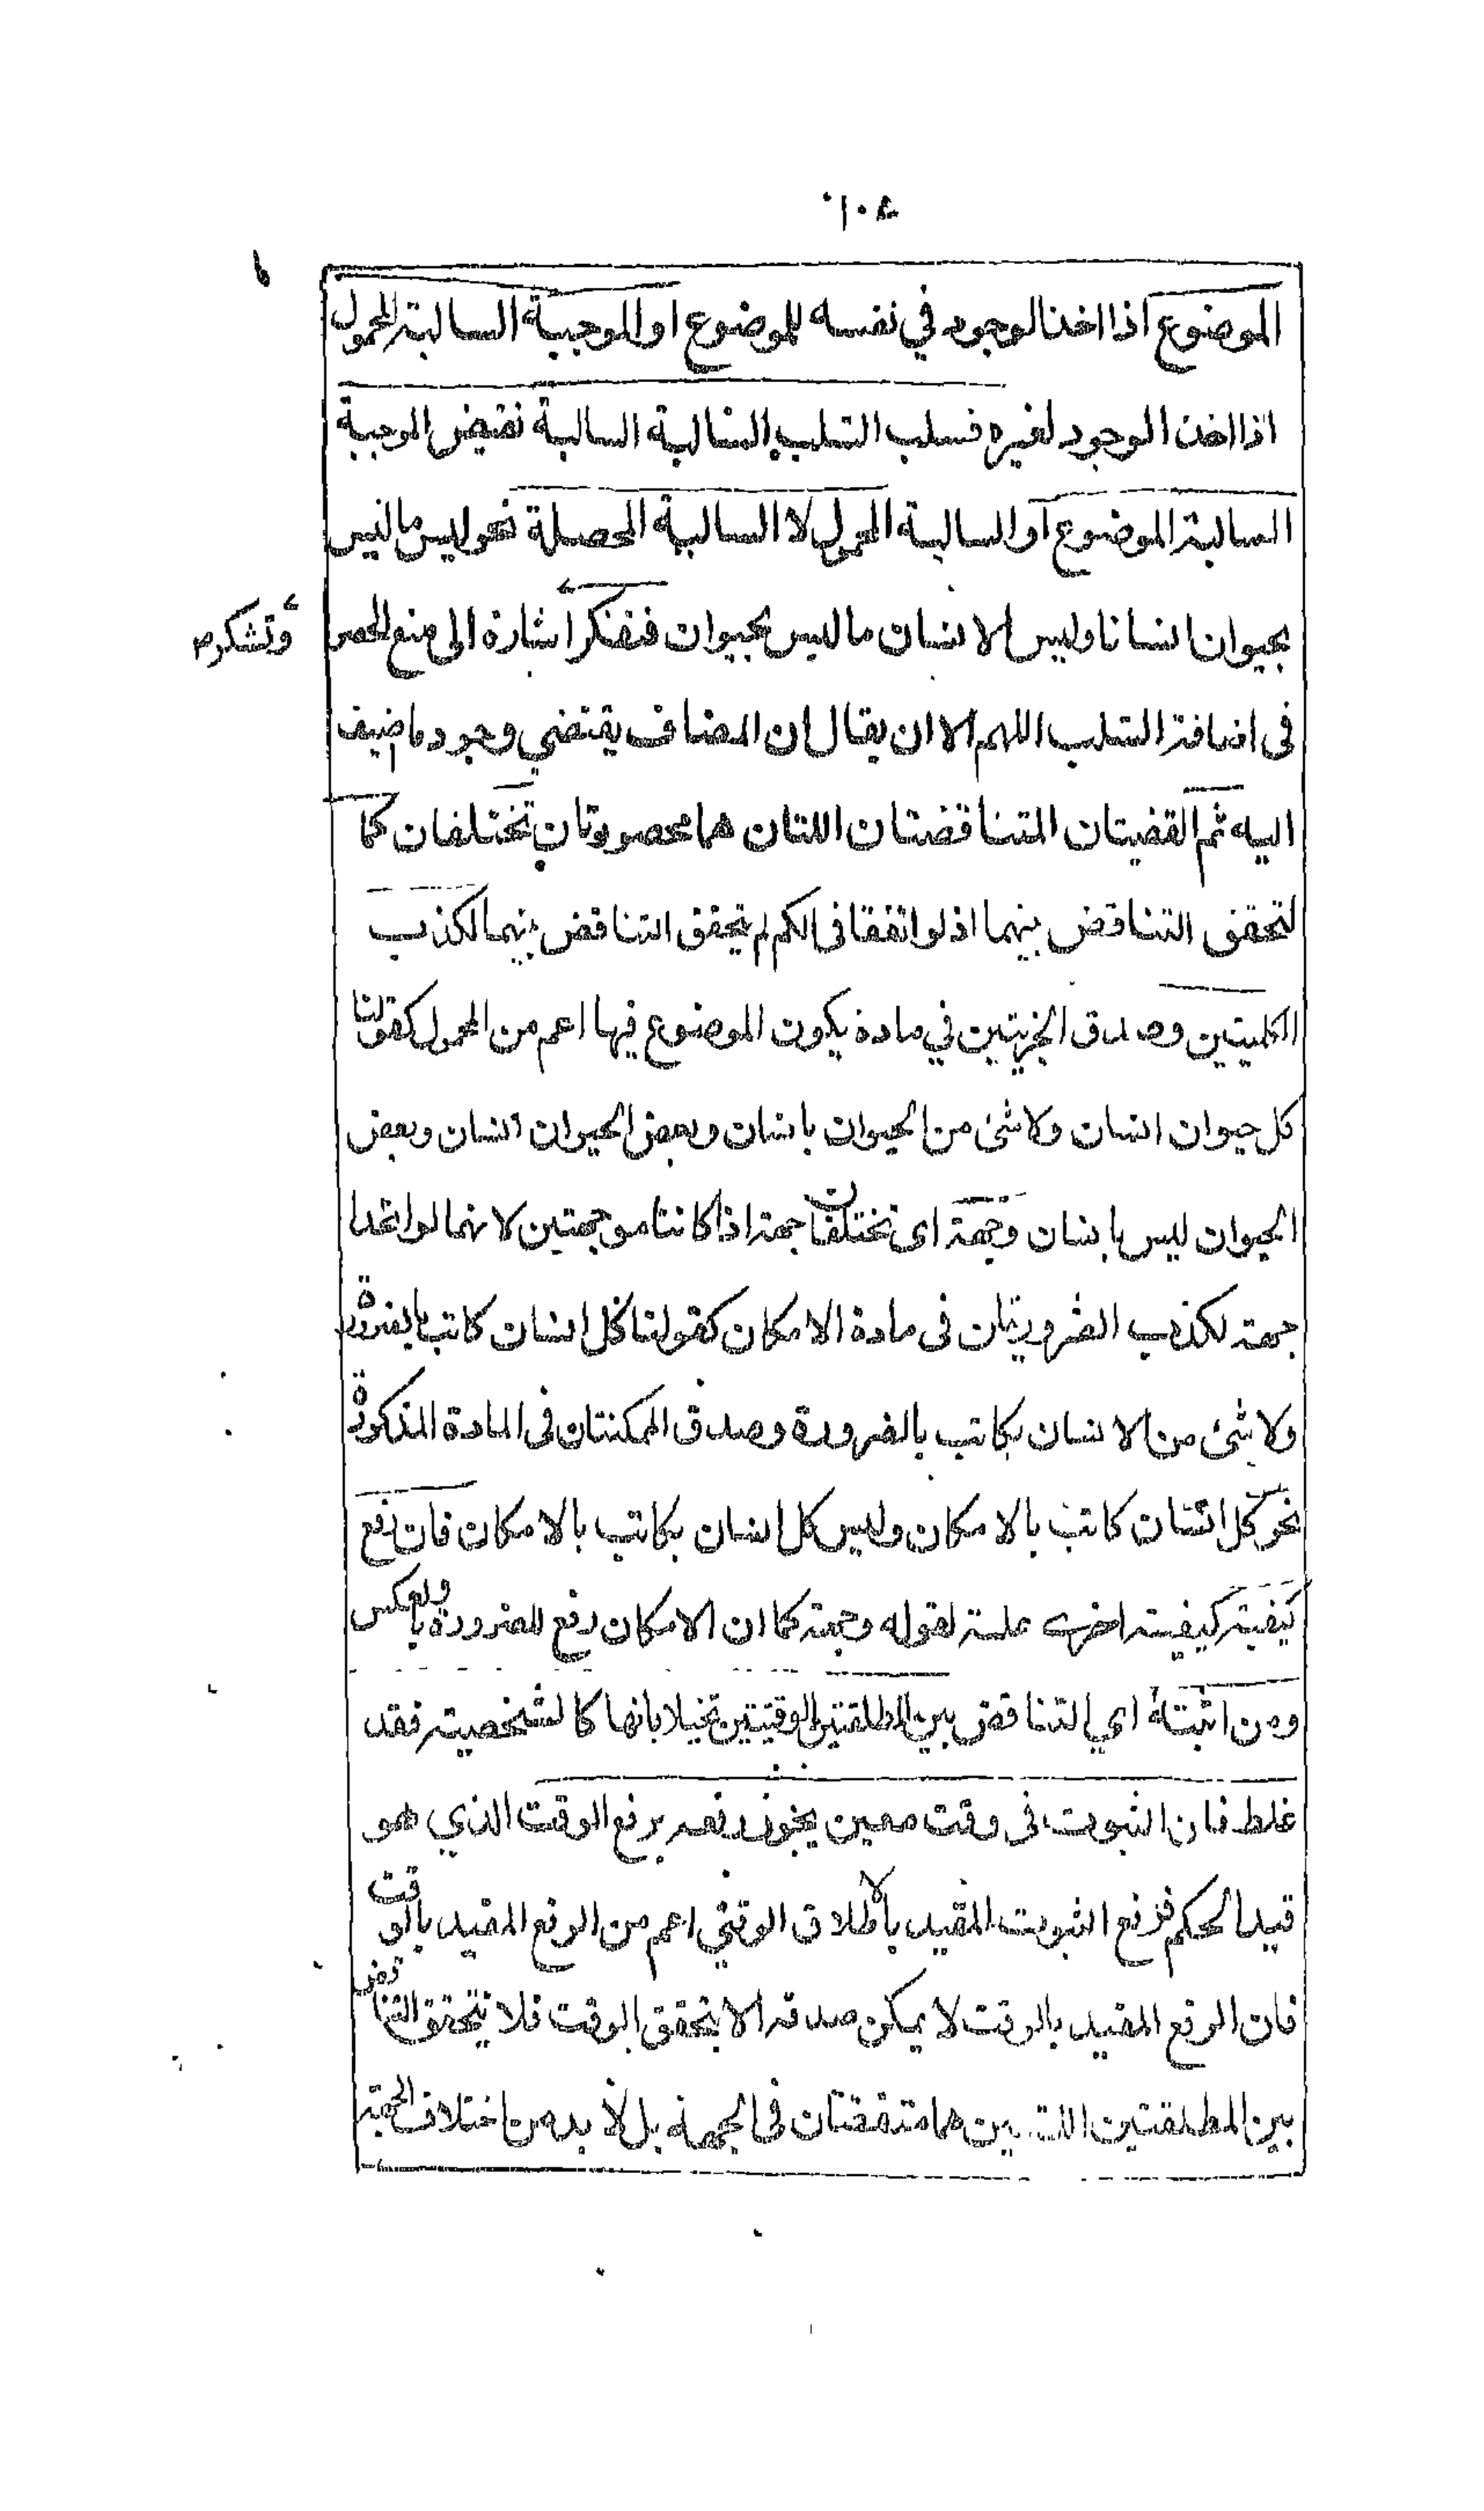 ١٠٨
الموضوع اذا اخذ الوجود في نفسه للموضوع او الموجبة السالبة المحمول
اذا اخذ الوجود لغيره فسلب السلب السالبة السالبة نقيض الموجبة
السالبة الموضوع او السالبة المحمول لا السالبة المحصلة نحو ليس ما ليس
بحيوان انسانا وليس الانسان ما ليس بحيوان فتفكر اشارة الى منع الحصر
وتشكر
في اضافة السلب اللهم الا ان يقال ان المضاف يقتضي وجود ما اضيف
اليه ثم القضيتان المتناقضتان اللتان هما محصورتان تختلفان كما
لتحقق التناقض بينهما اذ لو اتفقا في الكم لم يتحقق التناقض بينهما لكذب
الكليتين وصدق الجزئيتين في مادة يكون الموضوع فيها اعم من المحمول كقولنا
كل حيوان انسان ولا شئ من الحيوان بانسان وبعض الحيوان انسان وبعض
الحيوان ليس بانسان وجهة اى تختلفان جهة اذا كانتا موجهتين لانهما لو اتحدا
جهة لكذب الضروريتان فى مادة الامكان كقولنا كل انسان كاتب بالضرورة
ولا شئ من الانسان بكاتب بالضرورة وصدق الممكنتان فى المادة المذكورة
نحو كل انسان كاتب بالامكان وليس كل انسان بكاتب بالامكان فان رفع
كيفية كيفية اخرى علة لقوله وجهة كما ان الامكان رفع للضرورة وبالعكس
ومن اثبته اي التناقض بين المطلقتين الوقتيتين تخيلا بانها كالشخصية فقد
غلط فان الثبوت فى وقت معين يجوز رفعه برفع الوقت الذي هو
قيد الحكم فرفع الثبوت المقيد بالاطلاق الوقتي اعم من الرفع المقيد بالوقت
فان الرفع المقيد بالوقت لا يمكن صدقه الا بتحقق الوقت فلا يتحقق التناقض
بين المطلقتين اللتين هما متفقتان فى الجهة بل لا بد من اختلاف الجهة